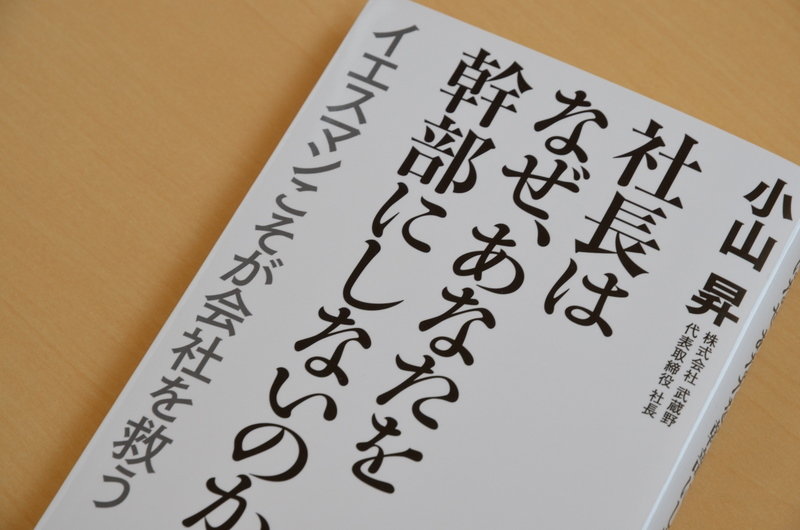 小山 昇
株式会社 武蔵野
代表取締役 社長
社長は
なぜ、あなたを
幹部にしないのか
イエスマンこそが会社を救う